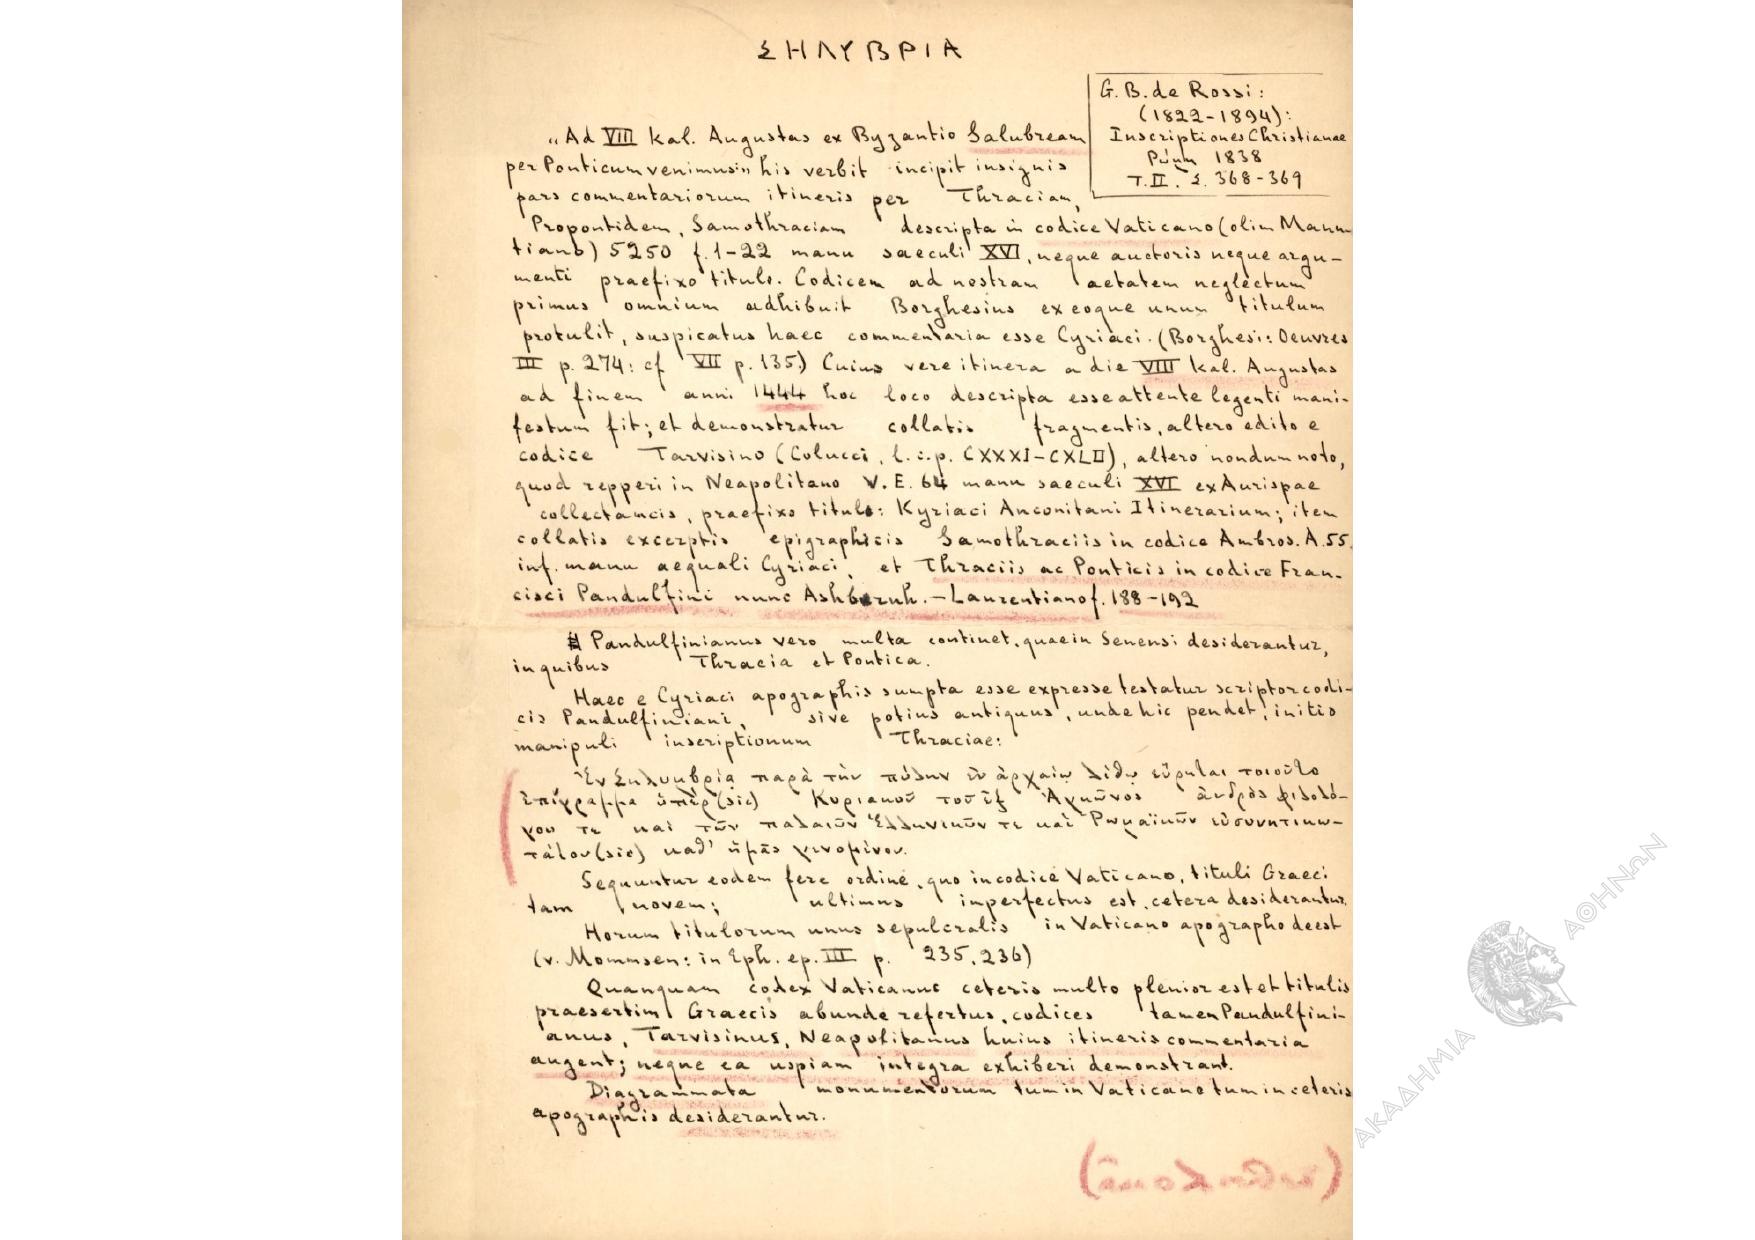 ΣΗΛΥΒΡΙΑ
G. B. de Rossi:
(1822-1894):
Inscriptiones Christianae
Ρώμη 1838
T. II. Σ. 368-369
„Ad VIII kal. Augustas ex Byzantio Salubream
per Ponticum venimus„ his verbit incipit insignis
pars commentariorum itineris per Thraciam,
Propontidem, Samothraciam descripta in codice Vaticano (olim Manu
tiano) 5250 f. 1-22 manu saeculi XVI, neque auctoris neque argu-
menti praefixo titulo. Codicem ad nostram aetatem neglectum
primus omnium adhibuit Borghesius ex eoque unum titulum
protulit, suspicatus haec commentaria esse Cyriaci. (Borghesi: Oeuvres
III p. 274: cf VII p. 135.) Cuius vere itinera a die VIII kal. Augustas
ad finem anni 1444 hoc loco descripta esse attente legenti mani-
festum fit; et demonstratur collatis fragmentis, altero edito e
codice Tarvisino (Colucci, l. c. p. CXXXI-CXLII), altero nondum noto,
quod repperi in Neapolitano V. E. 64 manu saeculi XVI ex Aurispae
collectaneis, praefixo titulo: Kyriaci Anconitani Itinerarium; item
collatis excerptis epigraphicis Samothraciis in codice Ambros. A. 55.
inf. manu aequali Cyriaci, et Thraciis ac Ponticis in codice Fran-
cisci Pandulfini nunc Ashburnh. - Laurentiano f. 188-192
Pandulfinianus vero multa continet, quae in Senensi desiderantur,
in quibus Thracia et Pontica.
Haec e Cyriaci apographis sumpta esse expresse testatur scriptor codi-
cis Pandulfiniani, sive potius antiquus, unde hic pendet, initio
manipuli inscriptionum Thraciae:
Ἐν Σηλυμβρίᾳ παρὰ τὴν πύλην ἐν ἀρχαίῳ λίθῳ εὕρηται τοιοῦτο
ἐπίγραμμα ὑπέρ (sic) Κυριακοῦ τοῦ ἐξ Ἀγκῶνος ἀνδρὸς φιλολό-
γου τε καὶ τῶν παλαιῶν Ἑλληνικῶν τε καὶ Ῥωμαϊκῶν εὐσυνητικω-
τάτου (sic) καθ' ἡμᾶς γενομένου.
Sequuntur eodem fere ordine, quo in codice Vaticano, tituli Graeci
tam novem; ultimus inperfectus est, cetera desiderantur.
Horum titulorum unus sepulcralis in Vaticano apographo deest
(v. Mommsen: in Eph. ep. III p. 235, 236)
Quanquam codex Vaticanus ceteris multo plenior est et titulis
praesertim Graecis abunde refertus, codices tamen Pandulfini-
anus, Tarvisinus, Neapolitanus huius itineris commentaria
augent; neque ea uspiam integra exhiberi demonstrant.
Diagrammata monumentorum tum in Vaticano tum in ceteris
apographis desiderantur.
ΑΚΑΔΗΜΙΑ ΑΘΗΝΩΝ